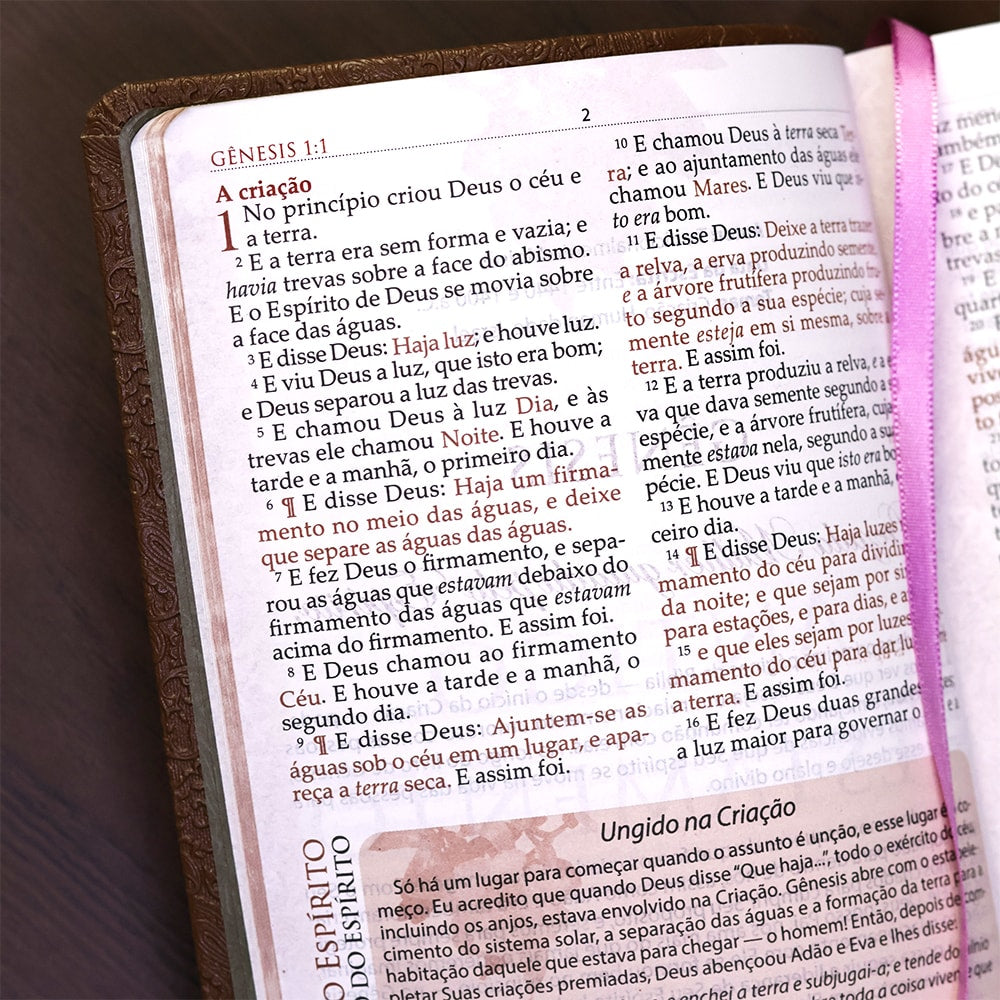 GÊNESIS 1:1
2
A criação
1 No princípio criou Deus o céu e
a terra.
2 E a terra era sem forma e vazia; e
havia trevas sobre a face do abismo.
E o Espírito de Deus se movia sobre
a face das águas.
3 E disse Deus: Haja luz; e houve luz.
4 E viu Deus a luz, que isto era bom;
e Deus separou a luz das trevas.
5 E chamou Deus à luz Dia, e às
trevas ele chamou Noite. E houve a
tarde e a manhã, o primeiro dia.
6 ¶ E disse Deus: Haja um firma-
mento no meio das águas, e deixe
que separe as águas das águas.
7 E fez Deus o firmamento, e sepa-
rou as águas que estavam debaixo do
firmamento das águas que estavam
acima do firmamento. E assim foi.
8 E Deus chamou ao firmamento
Céu. E houve a tarde e a manhã, o
segundo dia.
9 ¶ E disse Deus: Ajuntem-se as
águas sob o céu em um lugar, e apa-
reça a terra seca. E assim foi.
10 E chamou Deus à terra seca
ra; e ao ajuntamento das águas ele
chamou Mares. E Deus viu que
to era bom.
11 E disse Deus: Deixe a terra
a relva, a erva produzindo
e a árvore frutífera produzindo
to segundo a sua espécie; cuja
mente esteja em si mesma, sobre a
terra. E assim foi.
12 E a terra produziu a relva, e a
va que dava semente segundo a
espécie, e a árvore frutífera, cuja
mente estava nela, segundo a
pécie. E Deus viu que isto era
13 E houve a tarde e a manhã,
ceiro dia.
14 ¶ E disse Deus: Haja luzes
mamento do céu para dividir
da noite; e que sejam por
para estações, e para dias, e
15 e que eles sejam por luzes
mamento do céu para dar
a terra. E assim foi.
16 E fez Deus duas grandes
a luz maior para governar o
O ESPÍRITO
DO ESPÍRITO
Ungido na Criação
Só há um lugar para começar quando o assunto é unção, e esse lugar é o co-
meço. Eu acredito que quando Deus disse “Que haja...”, todo o exército do céu,
incluindo os anjos, estava envolvido na Criação. Gênesis abre com o estabele-
cimento do sistema solar, a separação das águas e a formação da terra para a
habitação daquele que estava para chegar — o homem! Então, depois de com-
pletar Suas criações premiadas, Deus abençoou Adão e Eva e lhes disse:
enchei a terra e subjugai-a; e tende
toda a coisa vivente que